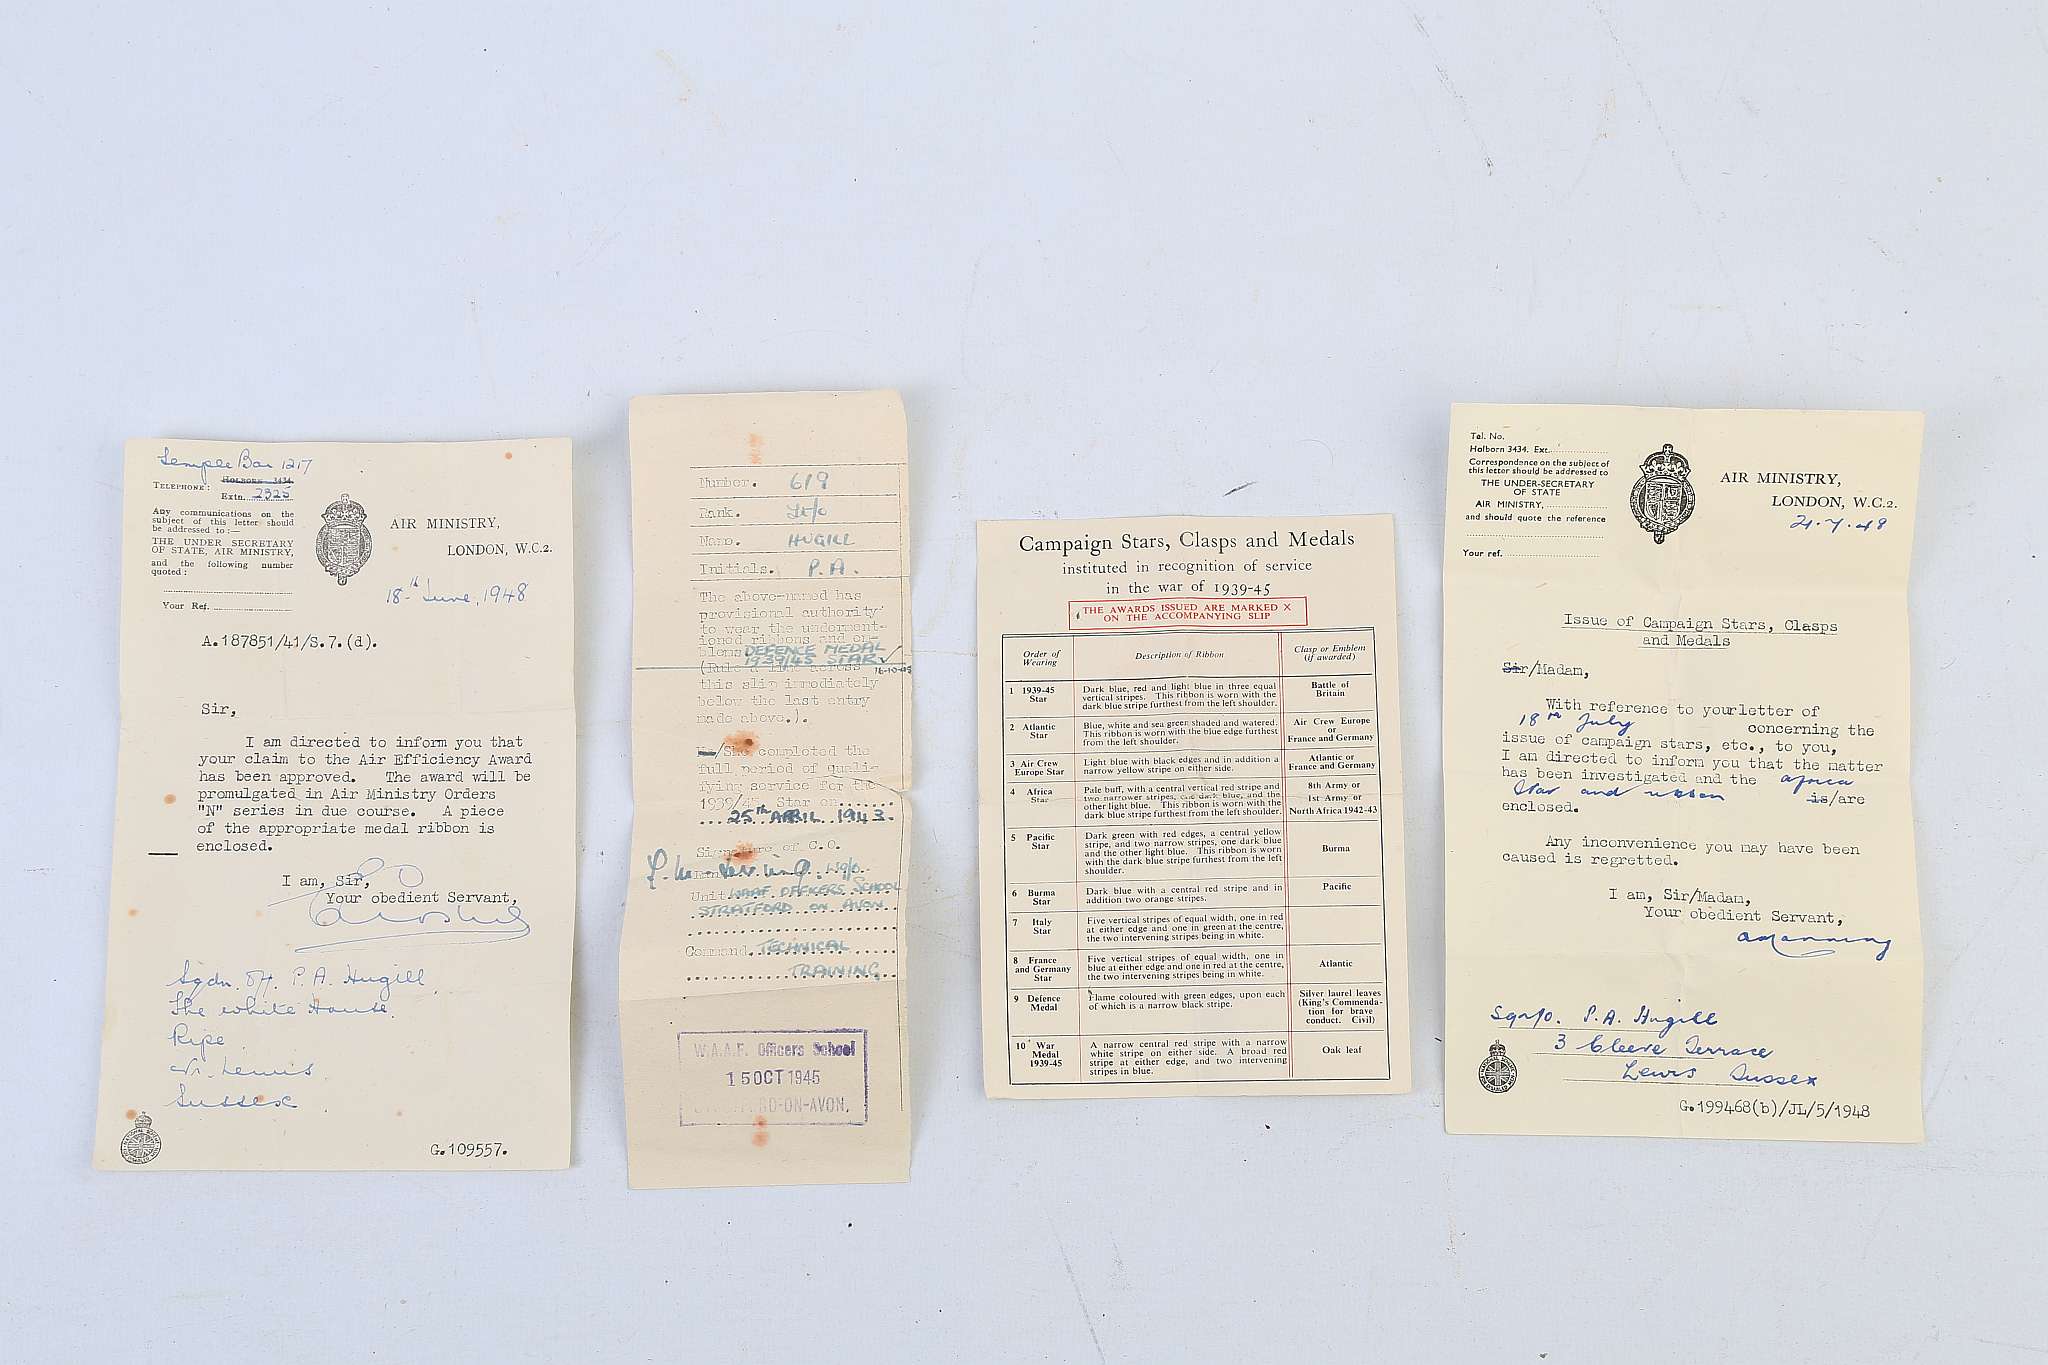 Temple Bar 1217
TELEPHONE: HOLBORN 3434.
Extn. 2325
Any communications on the
subject of this letter should
be addressed to :—
THE UNDER SECRETARY
OF STATE, AIR MINISTRY,
and the following number
quoted :
Your Ref.
AIR MINISTRY,
LONDON, W.C.2.
18th June, 1948
A.187851/41/S.7.(d).
Sir,
I am directed to inform you that
your claim to the Air Efficiency Award
has been approved. The award will be
promulgated in Air Ministry Orders
"N" series in due course. A piece
of the appropriate medal ribbon is
enclosed.
I am, Sir,
Your obedient Servant,
Sqdn. Off. P.A. Hugill
The White House
Ripe
Nr. Lewis
Sussex
G.109557.
Number. 619
Rank.
Name. HUGILL
Initials. P.A.
The above-named has
provisional authority
to wear the underment-
ioned ribbons and em-
blems DEFENCE MEDAL
1939/45 STAR ✓
(Rule a line across 16-10-45
this slip immediately
below the last entry
made above.).
He/She completed the
full period of quali-
fying service for the
1939/45 Star on
25th APRIL 1943.
Signature of C.O.
Unit WAAF OFFICERS SCHOOL
STRATFORD ON AVON
Command TECHNICAL
TRAINING
W.A.A.F. Officers School
15 OCT 1945
STRATFORD-ON-AVON.
Campaign Stars, Clasps and Medals
instituted in recognition of service
in the war of 1939-45
THE AWARDS ISSUED ARE MARKED X
ON THE ACCOMPANYING SLIP
Order of Wearing Description of Ribbon Clasp or Emblem (if awarded)
1 1939-45 Star
Dark blue, red and light blue in three equal
vertical stripes. This ribbon is worn with the
dark blue stripe furthest from the left shoulder.
Battle of Britain
2 Atlantic Star
Blue, white and sea green shaded and watered.
This ribbon is worn with the blue edge furthest
from the left shoulder.
Air Crew Europe
or
France and Germany
3 Air Crew Europe Star
Light blue with black edges and in addition a
narrow yellow stripe on either side.
Atlantic or
France and Germany
4 Africa Star
Pale buff, with a central vertical red stripe and
two narrower stripes, one dark blue, and the
other light blue. This ribbon is worn with the
dark blue stripe furthest from the left shoulder.
8th Army or
1st Army or
North Africa 1942-43
5 Pacific Star
Dark green with red edges, a central yellow
stripe, and two narrow stripes, one dark blue
and the other light blue. This ribbon is worn
with the dark blue stripe furthest from the left
shoulder.
Burma
6 Burma Star
Dark blue with a central red stripe and in
addition two orange stripes.
Pacific
7 Italy Star
Five vertical stripes of equal width, one in red
at either edge and one in green at the centre,
the two intervening stripes being in white.
8 France and Germany Star
Five vertical stripes of equal width, one in
blue at either edge and one in red at the centre,
the two intervening stripes being in white.
Atlantic
9 Defence Medal
Flame coloured with green edges, upon each
of which is a narrow black stripe.
Silver laurel leaves
(King's Commenda-
tion for brave
conduct. Civil)
10 War Medal 1939-45
A narrow central red stripe with a narrow
white stripe on either side. A broad red
stripe at either edge, and two intervening
stripes in blue.
Oak leaf
Tel. No.
Holborn 3434. Ext.
Correspondence on the subject of
this letter should be addressed to
THE UNDER-SECRETARY
OF STATE
AIR MINISTRY,
and should quote the reference
Your ref.
AIR MINISTRY,
LONDON, W.C.2.
21.7.48
Issue of Campaign Stars, Clasps
and Medals
Sir/Madam,
With reference to your letter of
18th July concerning the
issue of campaign stars, etc., to you,
I am directed to inform you that the matter
has been investigated and the Africa
Star and ribbon is/are
enclosed.
Any inconvenience you may have been
caused is regretted.
I am, Sir/Madam,
Your obedient Servant,
AManning
Sqn/O. P.A. Hugill
3 Cleeve Terrace
Lewis Sussex
G.199468(b)/JL/5/1948